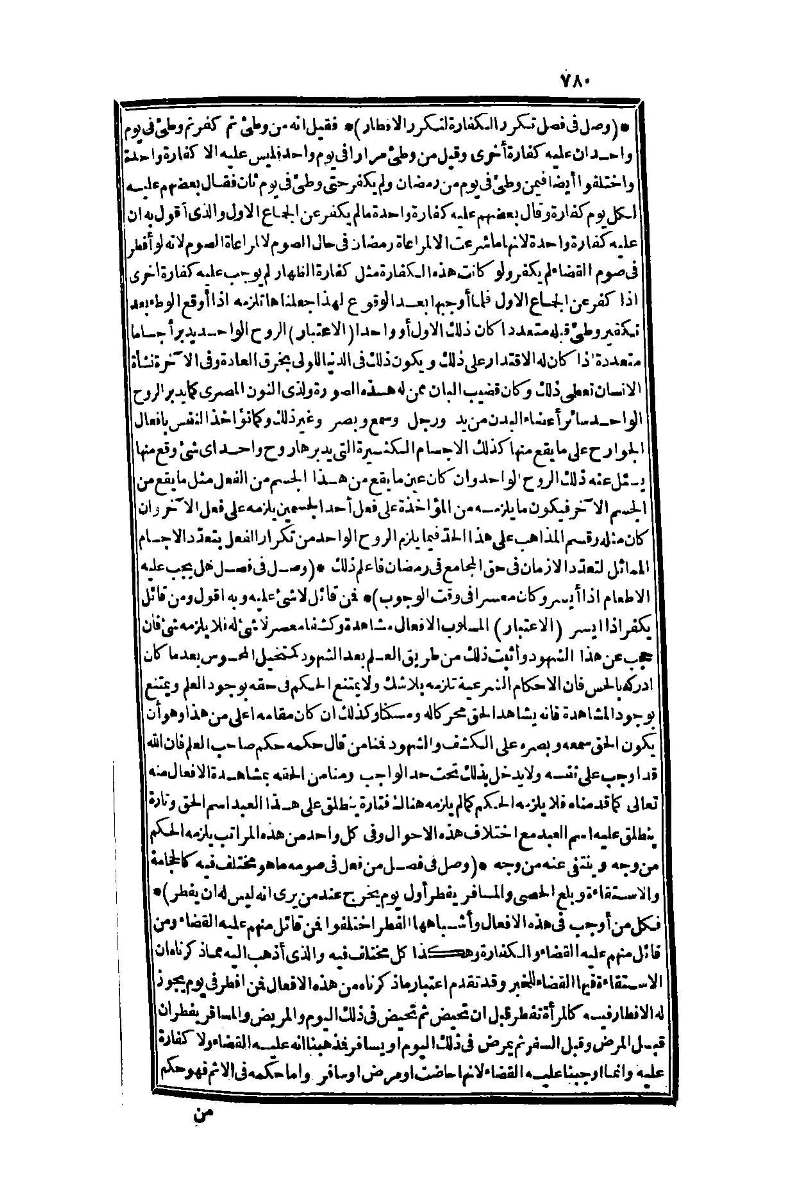 ٧٨٠
*(وصل فى فصل تكرر الكفارة لتكرر الافطار)* فقيل انه من وطئ ثم كفر ثم وطئ فى يوم
واحدان عليه كفارة أخرى وقيل من وطئ مرارا فى يوم واحد فليس عليه الا كفارة واحدة
واختلفوا أيضا فيمن وطئ فى يوم من رمضان ولم يكفر حتى وطئ فى يوم ثان فقال بعضهم عليه
لكل يوم كفارة وقال بعضهم عليه كفارة واحدة مالم يكفر عن الجماع الاول والذى أقول به ان
عليه كفارة واحدة لانها ماشرعت الا لمراعاة رمضان فى حال الصوم لا لمراعاة الصوم لانه لو أفطر
فى صوم القضاء لم يكفر ولو كانت هذه الكفارة مثل كفارة الظهار لم يوجب عليه كفارة اخرى
اذا كفر عن الجماع الاول فلما أوجبها بعد الوقوع لهذا جعلناها تلزمه اذا أوقع الوطء بعد
تكفير وطئ قبله متعددا كان ذلك الاول أو واحدا (الاعتبار) الروح الواحد يدبر أجساما
متعددة اذا كان له الاقتدار على ذلك ويكون ذلك فى الدنيا للولى بخرق العادة وفى الآخرة نشأة
الانسان تعطى ذلك وكان قضيب البان ممن له هذه الصورة ولذى النون المصرى كما يدبر الروح
الواحد سائر أعضاء البدن من يد ورجل وسمع وبصر وغير ذلك وكما تؤاخذ النفس بافعال
الجوارح على ما يقع منها كذلك الاجسام الكثيرة التى يدبرها روح واحد اى شئ وقع منها
يسئل عنه ذلك الروح الواحد وان كان عين ما يقع من هذا الجسم من الفعل مثل ما يقع من
الجسم الآخر فيكون ما يلزمه من المؤاخذة على فعل أحد الجسمين يلزمه على فعل الآخر وان
كان مثله وقسم المذاهب على هذا الحد فيما يلزم الروح الواحد من تكرار الفعل بتعدد الاجسام
المماثل لتعدد الازمان فى حق المجامع فى رمضان فاعلم ذلك *(وصل فى فصل هل يجب عليه
الاطعام اذا أيسر وكان معسرا فى وقت الوجوب)* فمن قائل لاشئ عليه وبه اقول ومن قائل
يكفر اذا ايسر (الاعتبار) المسلوب الافعال مشاهدة وكشفا معصر لاشئ له فلا يلزمه شئ فان
حجب عن هذا الشهود وأثبت ذلك من طريق العلم بعد الشهود كتخيل المحسوس بعد ما كان
ادركه بالحس فان الاحكام الشرعية تلزمه بلاشك ولا يمتنع الحكم فى حقه بوجود العلم ويمتنع
بوجود المشاهدة فانه يشاهد الحق محركا له ومسكنا وكذلك ان كان مقامه اعلى من هذا وهو أن
يكون الحق سمعه وبصره على الكشف والشهود فمنا من قال حكمه حكم صاحب العلم فان الله
قد اوجب على نفسه ولا يدخل بذلك تحت حد الواجب ومنا من الحقه بمشاهدة الافعال منه
تعالى كما قدمناه فلا يلزمه الحكم كما لم يلزمه هناك فتارة ينطلق على هذا العبد اسم الحق وتارة
ينطلق عليه اسم العبد مع اختلاف هذه الاحوال وفى كل واحد من هذه المراتب يلزمه الحكم
من وجه وينتفى عنه من وجه *(وصل فى فصل من فعل فى صومه ما هو مختلف فيه كالحجامة
والاستقاءة وبلع الحصى والمسافر يفطر أول يوم يخرج عند من يرى انه ليس له ان يفطر)*
فكل من أوجب فى هذه الافعال وأشباهها الفطر اختلفوا فمن قائل منهم عليه القضاء ومن
قائل منهم عليه القضاء والكفارة وهكذا كل مختلف فيه والذى أذهب اليه مما ذكرناه ان
الاستقاءة فيها القضاء للخبر وقد تقدم اعتبار ما ذكرناه من هذه الافعال فمن افطر فى يوم يجوز
له الافطار فيه كالمرأة تفطر قبل ان تحيض ثم تحيض فى ذلك اليوم والمريض والمسافر يفطران
قبل المرض وقبل السفر ثم يمرض فى ذلك اليوم او يسافر فذهبنا انه عليه القضاء ولا كفارة
عليه وانما اوجبنا عليه القضاء لانها حاضت او مرض او سافر واما حكمه فى الاثم فهو حكم
من